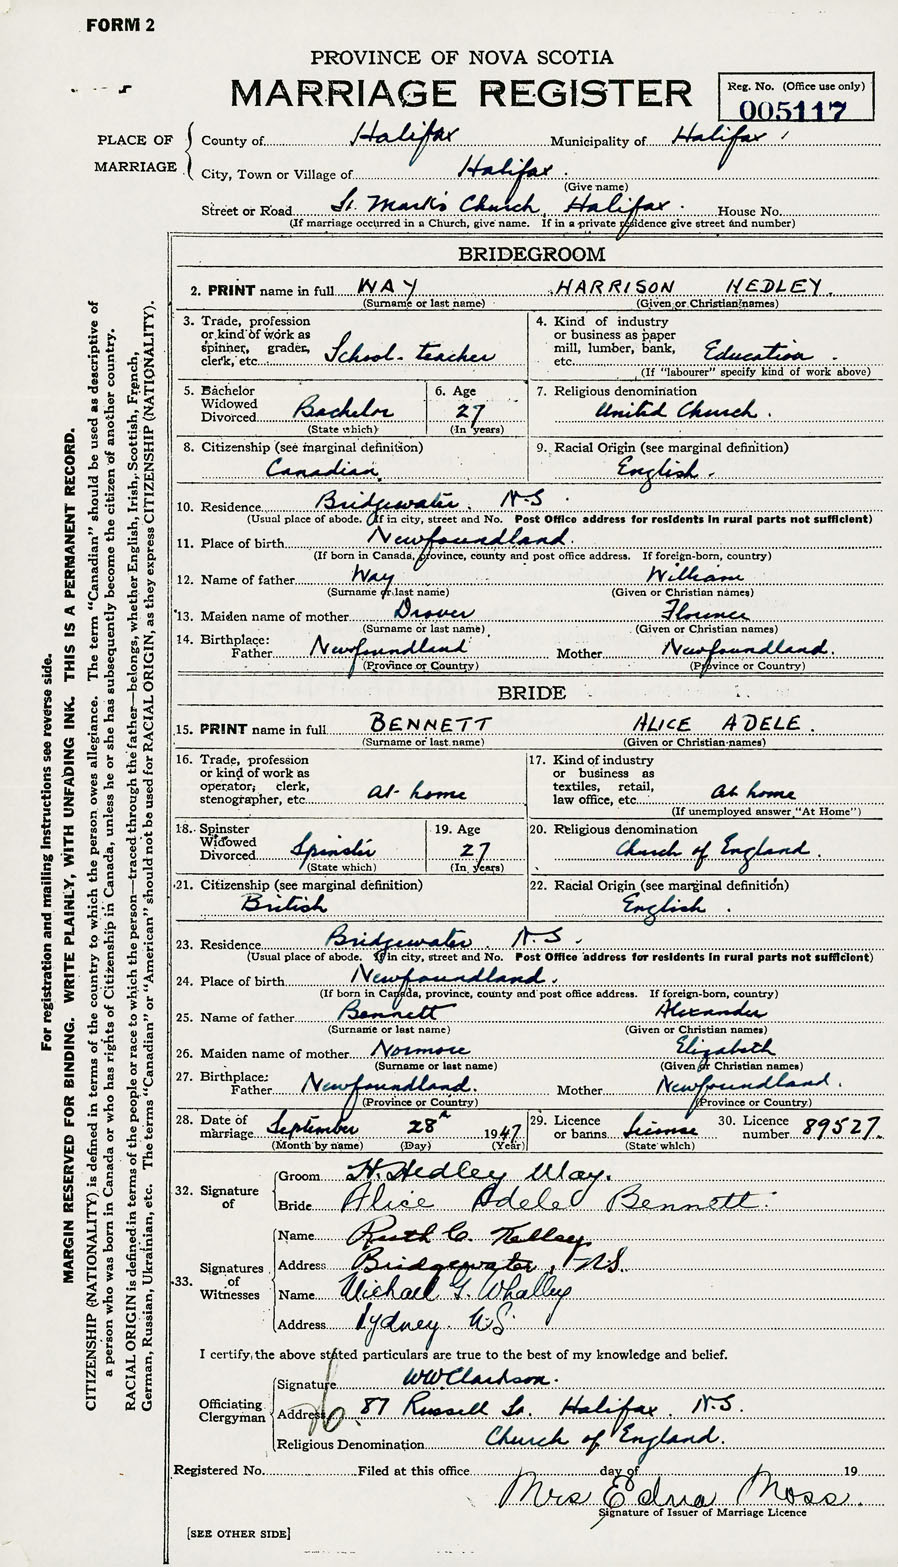 FORM 2
PROVINCE OF NOVA SCOTIA
MARRIAGE REGISTER
Reg. No. (Office use only)
005117
PLACE OF MARRIAGE
County of Halifax Municipality of Halifax
City, Town or Village of Halifax
(Give name)
Street or Road St. Mark's Church, Halifax. House No.
(If marriage occurred in a Church, give name. If in a private residence give street and number)
BRIDEGROOM
2. PRINT name in full WAY HARRISON HEDLEY.
(Surname or last name) (Given or Christian names)
3. Trade, profession or kind of work as spinner, grader, clerk, etc. School-teacher
4. Kind of industry or business as paper mill, lumber, bank, etc. Education.
(If "labourer" specify kind of work above)
5. Bachelor Widowed Divorced Bachelor
(State which)
6. Age 27
(In years)
7. Religious denomination
United Church.
8. Citizenship (see marginal definition)
Canadian
9. Racial Origin (see marginal definition)
English.
10. Residence Bridgewater. N.S.
(Usual place of abode. If in city, street and No. Post Office address for residents in rural parts not sufficient)
11. Place of birth Newfoundland.
(If born in Canada, province, county and post office address. If foreign-born, country)
12. Name of father Way William
(Surname or last name) (Given or Christian names)
13. Maiden name of mother Drover Florence
(Surname or last name) (Given or Christian names)
14. Birthplace:
Father Newfoundland Mother Newfoundland.
(Province or Country) (Province or Country)
BRIDE
15. PRINT name in full BENNETT ALICE ADELE.
(Surname or last name) (Given or Christian names)
16. Trade, profession or kind of work as operator, clerk, stenographer, etc. at home
17. Kind of industry or business as textiles, retail, law office, etc. at home
(If unemployed answer "At Home")
18. Spinster Widowed Divorced Spinster
(State which)
19. Age 27
(In years)
20. Religious denomination
Church of England.
21. Citizenship (see marginal definition)
British
22. Racial Origin (see marginal definition)
English.
23. Residence Bridgewater. N.S.
(Usual place of abode. If in city, street and No. Post Office address for residents in rural parts not sufficient)
24. Place of birth Newfoundland.
(If born in Canada, province, county and post office address. If foreign-born, country)
25. Name of father Bennett Alexander
(Surname or last name) (Given or Christian names)
26. Maiden name of mother Normore Elizabeth
(Surname or last name) (Given or Christian names)
27. Birthplace:
Father Newfoundland. Mother Newfoundland.
(Province or Country) (Province or Country)
28. Date of marriage September 28th 1947
(Month by name) (Day) (Year)
29. Licence or banns License
(State which)
30. Licence number 89527.
32. Signature of
Groom H. Hedley Way.
Bride Alice Adele Bennett.
33. Signatures of Witnesses
Name Ruth C. Kelley
Address Bridgewater, N.S.
Name Michael G. Whalley
Address Sydney N.S.
I certify, the above stated particulars are true to the best of my knowledge and belief.
Officiating Clergyman
Signature WW. Clarkson.
Address 87 Russell St. Halifax. N.S.
Religious Denomination Church of England.
Registered No. Filed at this office day of 19
Mrs Edna Moss.
Signature of Issuer of Marriage Licence
[SEE OTHER SIDE]
For registration and mailing instructions see reverse side.
MARGIN RESERVED FOR BINDING. WRITE PLAINLY, WITH UNFADING INK. THIS IS A PERMANENT RECORD.
CITIZENSHIP (NATIONALITY) is defined in terms of the country to which the person owes allegiance. The term "Canadian" should be used as descriptive of
a person who was born in Canada or who has rights of Citizenship in Canada, unless he or she has subsequently become the citizen of another country.
RACIAL ORIGIN is defined in terms of the people or race to which the person—traced through the father—belongs, whether English, Irish, Scottish, French,
German, Russian, Ukrainian, etc. The terms "Canadian" or "American" should not be used for RACIAL ORIGIN, as they express CITIZENSHIP (NATIONALITY).